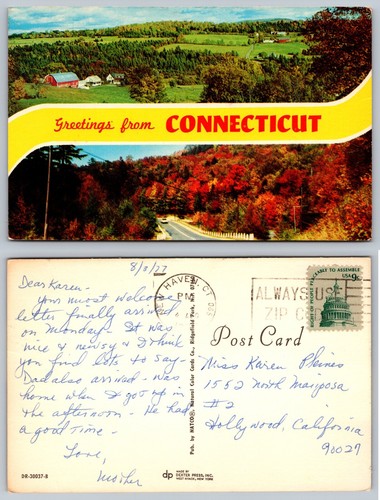 Greetings from CONNECTICUT
8/8/77
Dear Karen-
Your most welcome
letter finally arrived
on Monday. It was
nice & newsy &
you find lots to say-
Dad also arrived - was
home when I got up in
the afternoon - He had
a good time -
Love,
Mother
DR-30037-B
Pub. by NATCO, Natural Color Cards Co., Ridgefield Park, N.J.
MADE BY
dp DEXTER PRESS, INC.
WEST NYACK, NEW YORK
HAVEN, CT
PM
ALWAYS USE
ZIP
RIGHT OF PEOPLE PEACEABLY TO ASSEMBLE
USA 9c
Post Card
Miss Karen
1552 North Mariposa
#2
Hollywood, California
90027